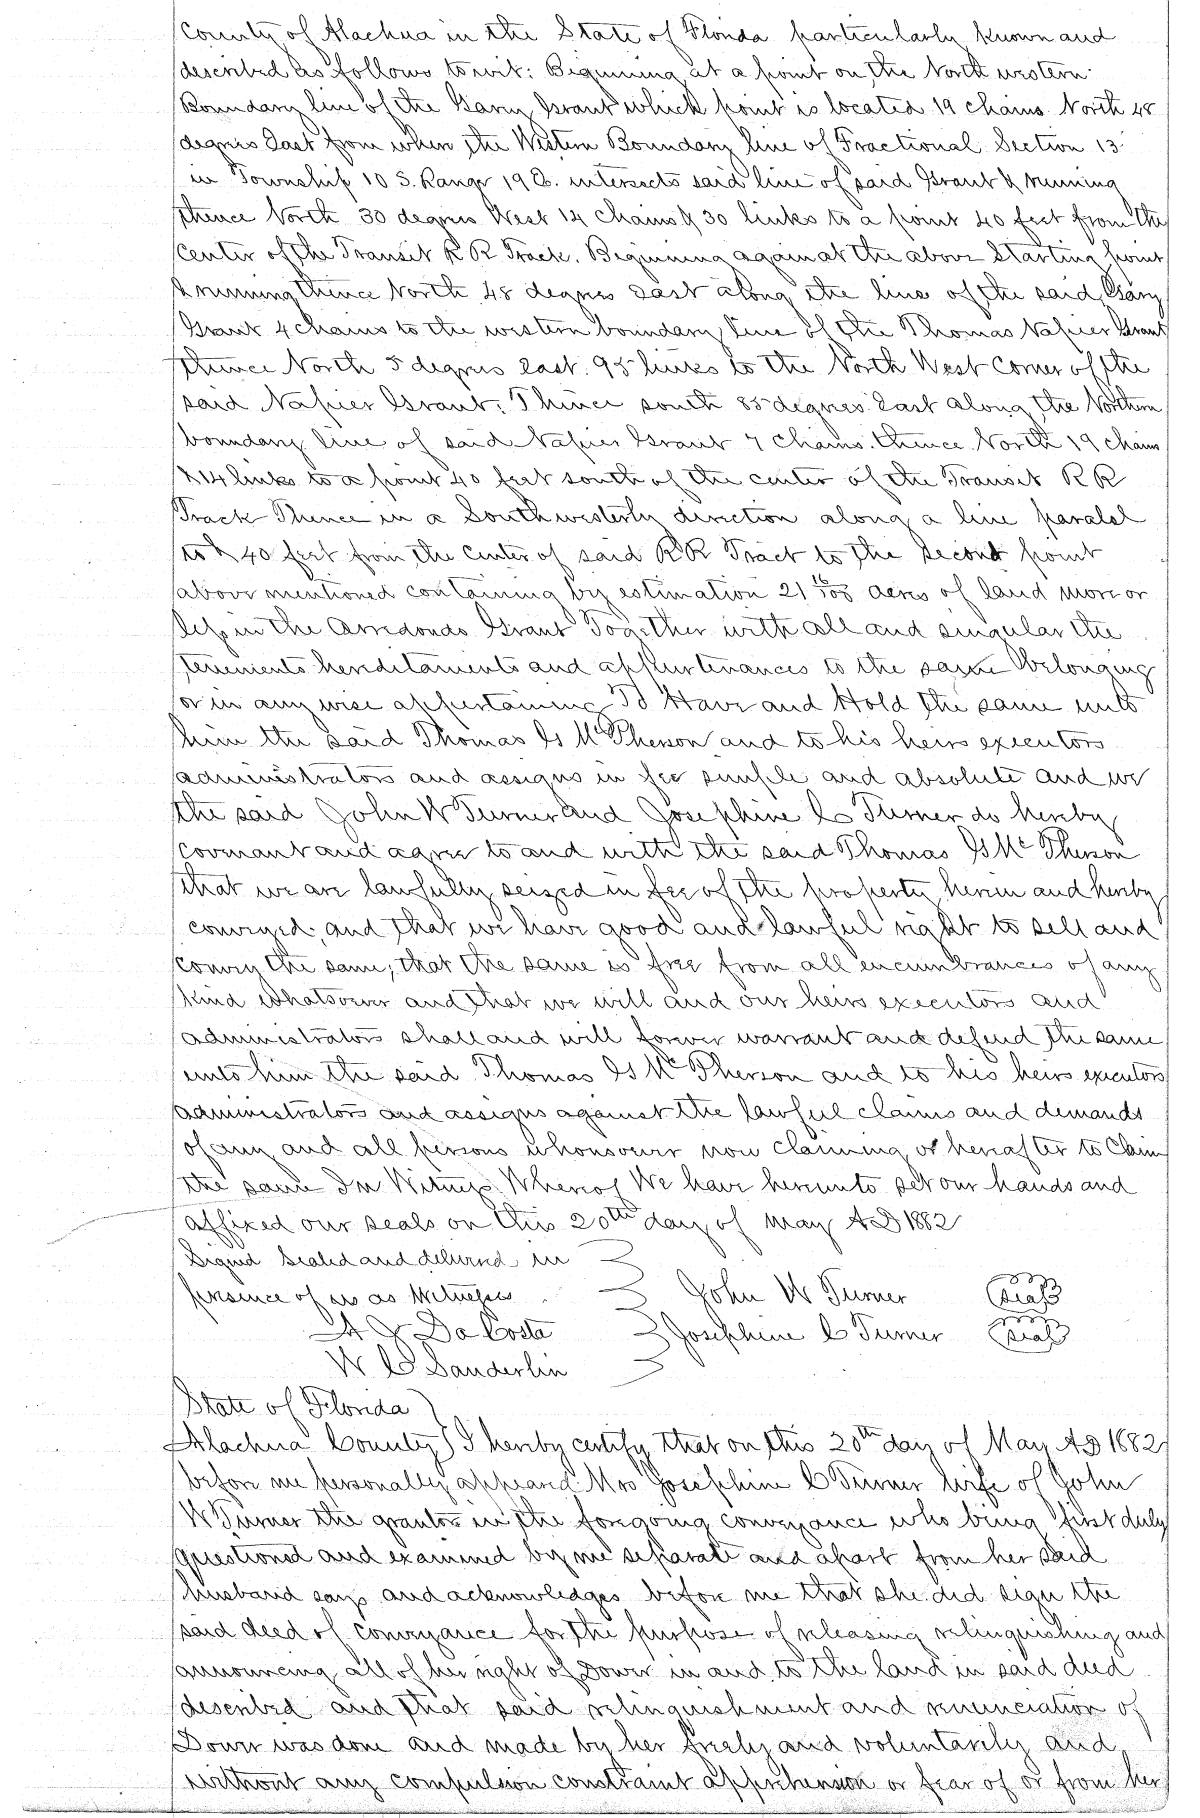 County of Alachua in the State of Florida particularly known and
described as follows to wit: Beginning at a point on the North western
Boundary line of the Gary Grant which point is located 19 chains North 48
degrees East from when the Western Boundary line of Fractional Section 13
in Township 10 S. Range 19 E. intersects said line of said Grant & running
thence North 30 degrees West 14 Chains & 30 links to a point 40 feet from the
Center of the Transit R R Track. Beginning again at the above Starting point
& running thence North 48 degrees East along the line of the said Gary
Grant 4 chains to the western boundary line of the Thomas Napier Grant
thence North 5 degrees East. 95 links to the North West Corner of the
said Napier Grant. Thence south 85 degrees East along the Northern
boundary line of said Napier Grant 7 Chains. thence North 19 chains
& 14 links to a point 40 feet south of the center of the Transit R R
Track Thence in a Southwesterly direction along a line paralel
to & 40 feet from the Center of said R R Tract to the second point
above mentioned containing by estimation 21 16/100 acres of land more or
less in the Arredondo Grant Together with all and singular the
tenements hereditaments and appurtenances to the same belonging
or in any wise appertaining To Have and Hold the same unto
him the said Thomas G McPherson and to his heirs executors
administrators and assigns in fee simple and absolute and we
the said John W Turner and Josephine C Turner do hereby
covenant and agree to and with the said Thomas G McPherson
that we are lawfully seized in fee of the property herein and hereby
conveyed; and that we have good and lawful right to sell and
convey the same; that the same is free from all encumbrances of any
kind whatsoever and that we will and our heirs executors and
administrators shall and will forever warrant and defend the same
unto him the said Thomas G McPherson and to his heirs executors
administrators and assigns against the lawful claims and demands
of any and all persons whomsoever now claiming or hereafter to Claim
the same In Witness Whereof We have hereunto set our hands and
affixed our seals on this 20th day of May AD 1882
Signed Sealed and delivered in
presence of us as Witnesses John W Turner (seal)
A J Da Costa Josephine C Turner (seal)
W C Sanderlin
State of Florida
Alachua County I hereby certify that on this 20th day of May AD 1882
before me personally appeared Mrs Josephine C Turner wife of John
W Turner the grantor in the foregoing conveyance who being first duly
questioned and examined by me separate and apart from her said
husband says and acknowledges before me that she did sign the
said deed of conveyance for the purpose of releasing relinquishing and
announcing all of her right of Dower in and to the land in said deed
described and that said relinquishment and renunciation of
Dower was done and made by her freely and voluntarily and
without any compulsion constraint apprehension or fear of or from her